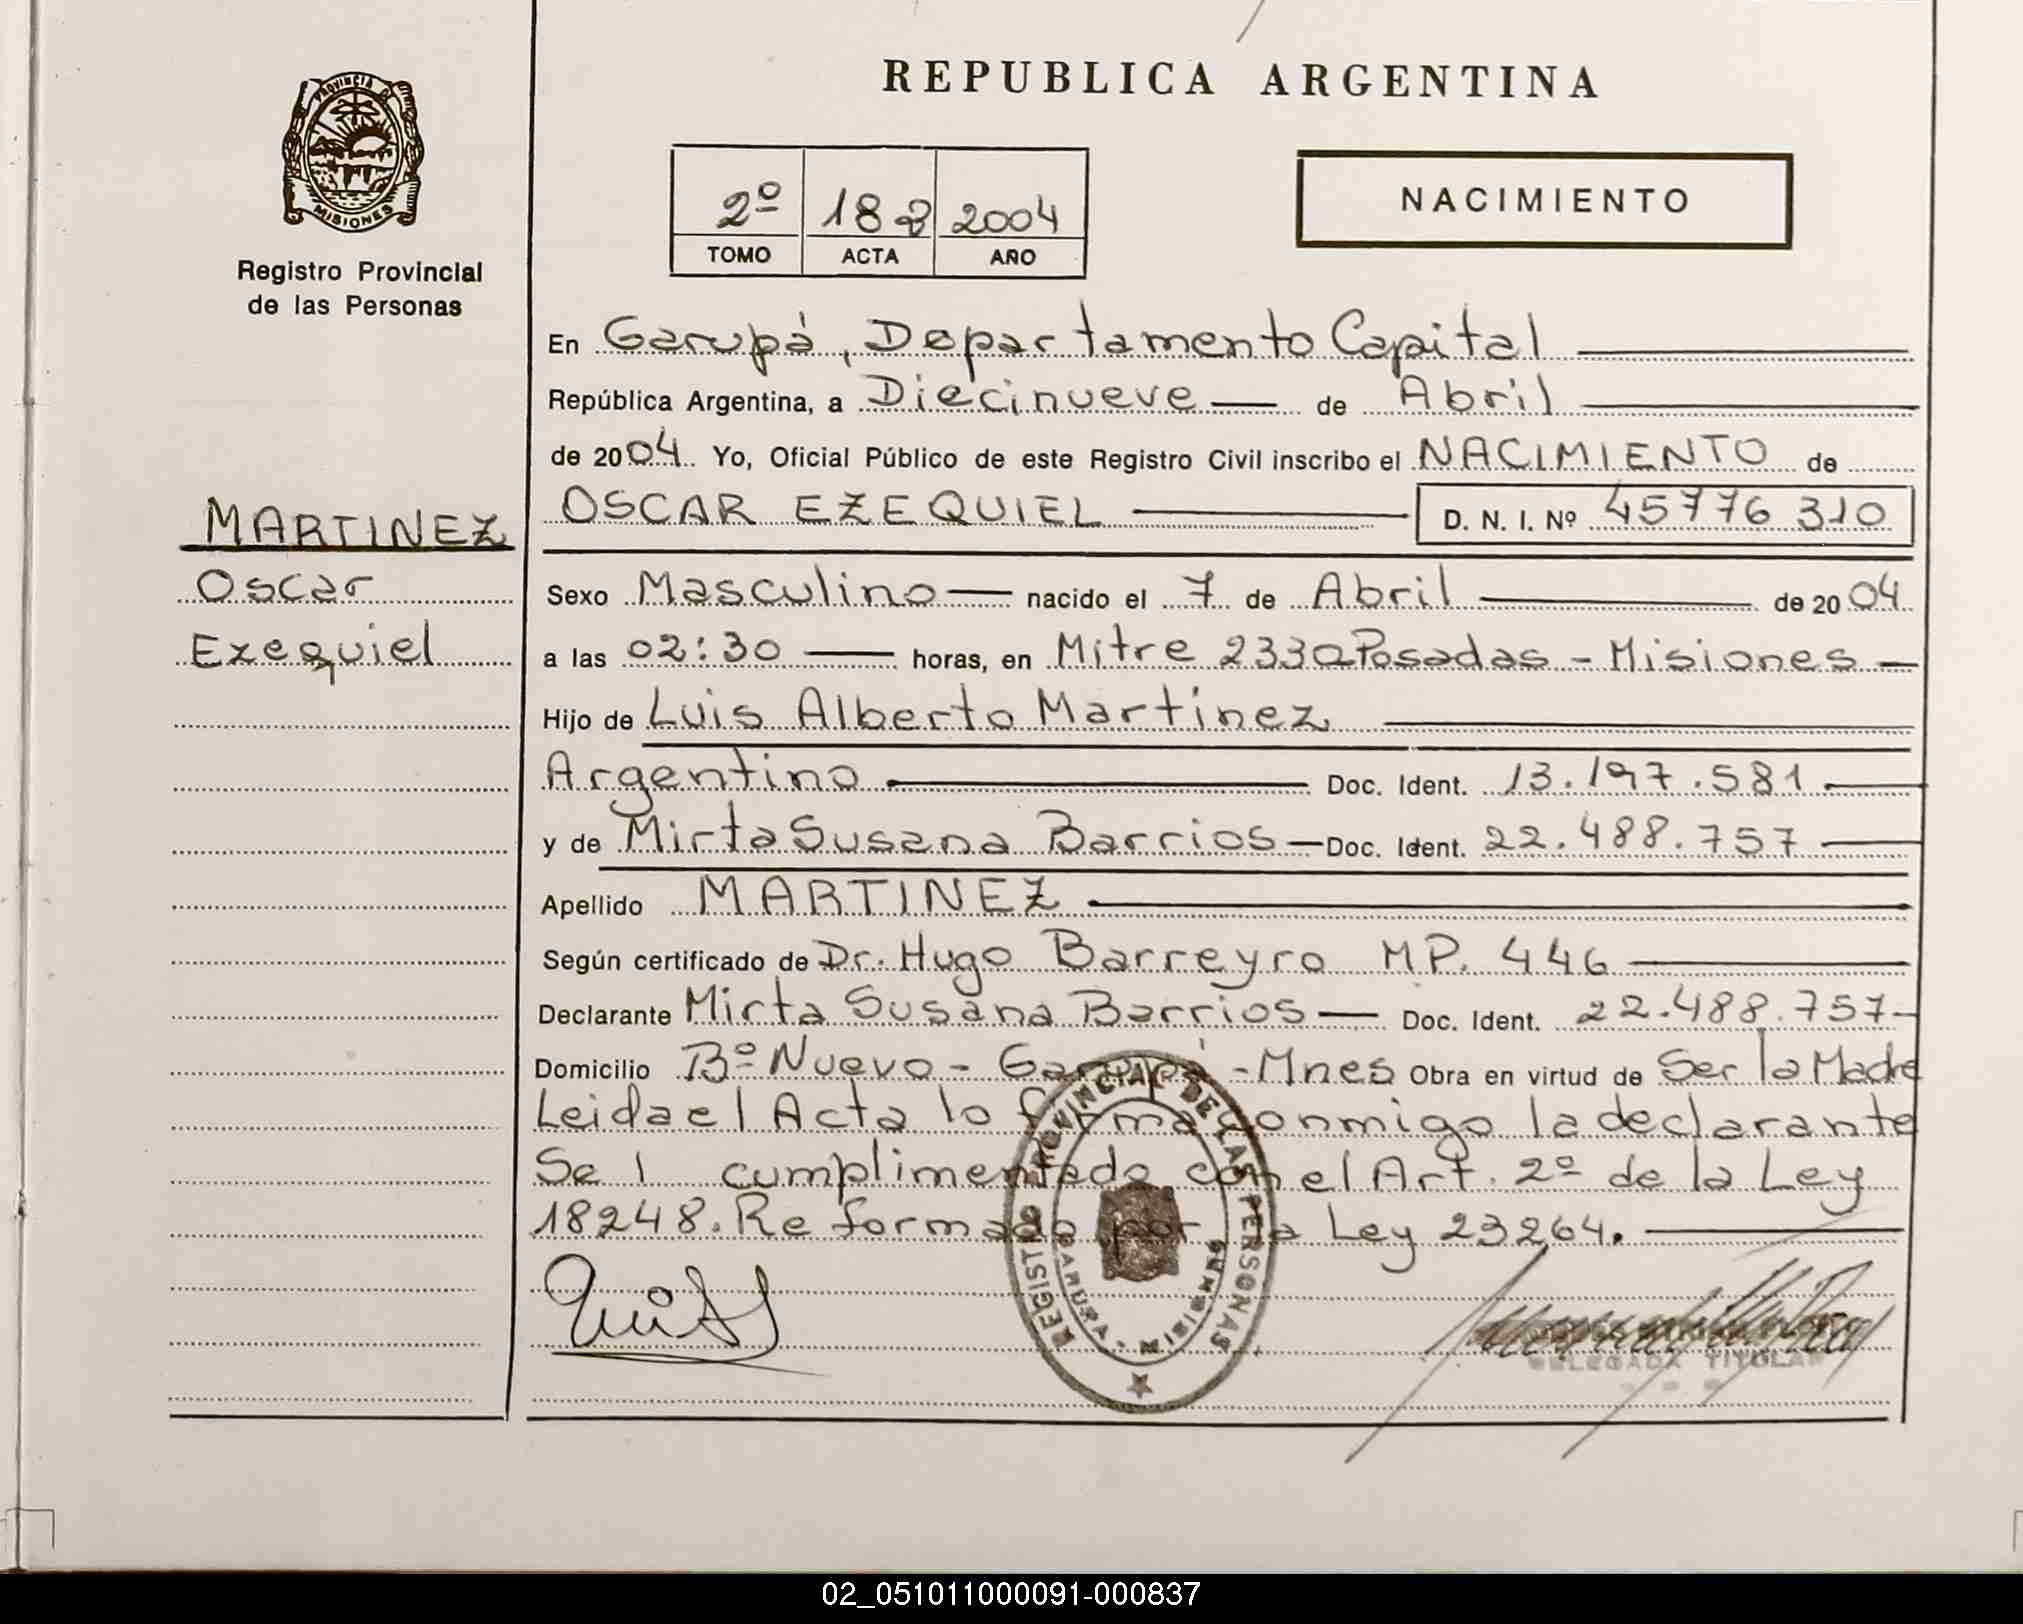 REPUBLICA ARGENTINA
PROVINCIA DE
MISIONES
Registro Provincial
de las Personas
2º 188 2004
TOMO ACTA AÑO
NACIMIENTO
En Garupá, Departamento Capital
República Argentina, a Diecinueve de Abril
de 2004 Yo, Oficial Público de este Registro Civil inscribo el NACIMIENTO de
OSCAR EZEQUIEL D. N. I. Nº 45776 310
MARTINEZ
Oscar
Ezequiel
Sexo Masculino nacido el 7 de Abril de 2004
a las 02:30 horas, en Mitre 2330 Posadas - Misiones
Hijo de Luis Alberto Martinez
Argentino Doc. Ident. 13.197.581
y de Mirta Susana Barrios Doc. Ident. 22.488.757
Apellido MARTINEZ
Según certificado de Dr. Hugo Barreyro MP. 446
Declarante Mirta Susana Barrios Doc. Ident. 22.488.757
Domicilio Bº Nuevo - Garupá - Mnes Obra en virtud de Ser la Madre
Leida el Acta lo firma conmigo la declarante
Se cumplimentado con el Art. 2º de la Ley
18248. Reformado por la Ley 23264.
REGISTRO PROVINCIAL DE LAS PERSONAS
GARUPA - MISIONES
DELEGADA TITULAR
02_051011000091-000837